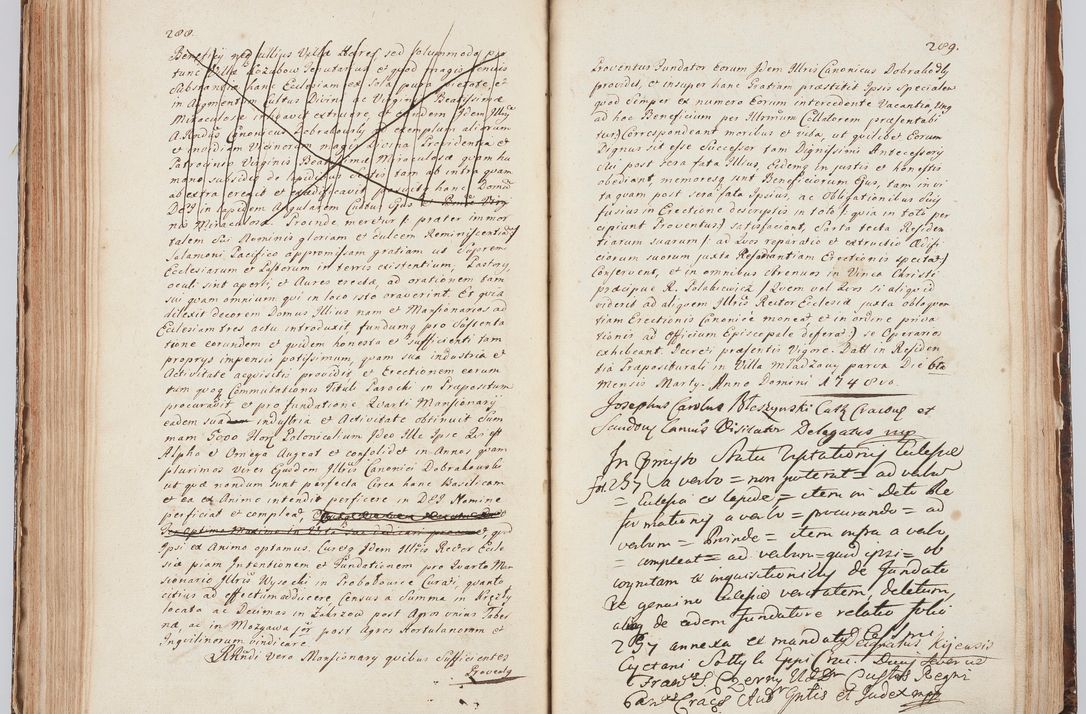 288.
Beneficij neq ullius Villæ Hæres sed solummodo pro
tunc Villæ Kozubow Tenutarius et quod magis tenuis
Fabricandam hanc Ecclesiam ex sola pura Pietate, et
in Augmentum Cultus Divini ac Virginis Beatissimæ
Miraculosæ extruere, et eundem Idem Illris
A. Rndus Canonicus Dobrakowsky exemplum aliorum
et invidiam Vicinorum magis Divina Providentia et
Patrocinio Virginis Beatissimæ Miraculosæ quam hu
mano subsidio de lapidibus tam ab intra quam
ab extra erexit et exædificavit posuitq hanc Domum
DEI in lapidem Angularem Cultus Ejus et Virgi
nis Miraculosæ. Proinde meretur præter immor
talem sui Nominis gloriam et dulcem Reminiscentiam
Salamoni Pacifico appromissam gratiam ut Suprem
Ecclesiarum et Pastorum in terris existentium, Pastory,
oculi sint aperti, et Aures erectæ, ad orationem tam
sui quam omnium qui in loco isto oraverint. Et quia
dilexit decorem Domus Illius nam et Mansionarios ad
Ecclesiam tres actu introduxit, fundumq pro sustenta
tione eorundem et quidem honesta et sufficienti tam
proprys impensis potissimum, quam sua industria et
Activitate acquisitis providit, et Erectionem eorum
tum quoq Commutationem Tituli Parochi in Præpositum
procuravit et pro fundatione Quarti Mansionary
eadem sua industria et Activitate obtinuit Sum
mam 5000 flor Polonicalium Ideo Ille Ipse Qui est
Alpha et Omega Augeat et consolidet in Annos quam
plurimos Vires Ejusdem Illris Canonici Dobrakowski
ut quæ nondum sunt perfecta Circa hanc Basilicam
et ea ex Animo intendit perficere in DEI Nomine
perficiat et compleat, quod
Ipsi ex Animo optamus. Curetq Idem Illris Rector Eccle
siæ piam Intentionem et Fundationem pro Quarto Man
sionario Illris Wysocki in Probolowice Curati, quanto
citius ad effectum adducere Census a Summa in Krężly
locata ac Decimas in Zakrzow post Agros unius Taber
næ ac in Mozgawa post Agros Hortulanorum et
Inquilinorum vindicare.
ARndi Vero Mansionary quibus Sufficientes
Proventg
289.
Proventus Fundator Eorum Idem Illris Canonicus Dobrakowsky
providet, et insuper hanc Gratiam præstitit Ipsis Specialem
quod Semper ex numero Eorum intercedente Vacantia Unq
ad hoc Beneficium per Illrmum Collatorem præsentabi
tur Correspondeant moribus et vita, ut quilibet Eorum
Dignus sit esse Successor tam Dignissimi Antecessoris
Cui post sera fata Illius, Eidemq in justis et honestis
obediant, memoresq sint Beneficiorum Ejus, tam in vi
ta quam post sera fata Ipsius, ac Obligationibus Suis
fusius in Erectione descriptis in toto quia in toto per
cipiunt Proventus satisfaciant, Sarta tecta Residen
tiarum suarum ad Quos reparatio et extructio Ædifi
ciorum suorum juxta Erectionis spectat
Conservent, et in omnibus strenuos in Vinea Christi
præcipue R. Polakiewicz Quem vel Quos si aliquid
viderit ad aliquem Illris Rector Ecclesiæ juxta obloquen
tiam Erectionis Canonice moneat et in ordine priva
tionis ad Officium Episcopale deferat se Operarios
exhibeant. Decreti præsentis Vigore. Datt in Residen
tia Præposituræli in Villa Młodzawy parva Die 6ta
Mensis Marty. Anno Domini 1748vo.
Josephus Carolus Błeszynski Cath. Cracovs et
Sandoms Canonicus Visitator Delegatus mp
In Præmisso Statu Vistationis Ecclesiæ
fol. 287 a verbo = non poterat = ad verbum
= Ecclesia ex lapide = item in Decreto Re
formationis a verbo = procurando = ad
verbum = Proinde = item infra a verbo
= compleat = ad verbum = quod ipsi = ob
cognitam et inquisitionibus de Fundato
re genuino Ecclesiæ veritatem, deletum,
aliaq de eodem Fundatore relatio folio
287 annexa ex mandato Celsmi
Cajetani Sołtyk Eppi Crac.
Franus S. Czerny Custos Regni
Canus Cracs Audr Gnlis et Judex mpp